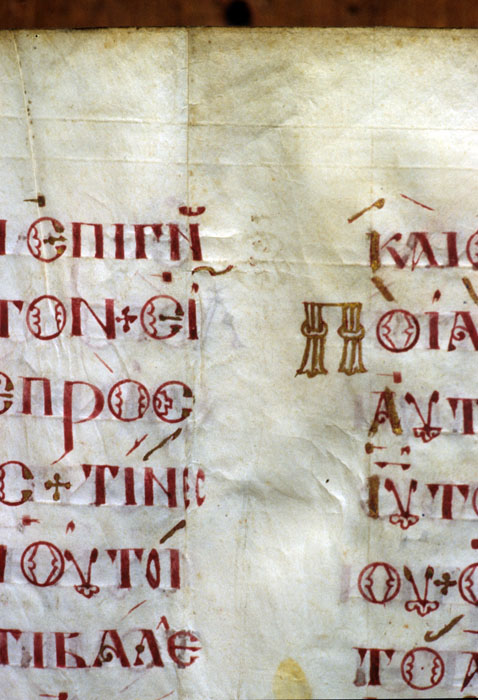 Ι ΕΠΙΓΗ̃
ΤΟΝ + ΕΙ
ΕΠΡΟС
С + ΤΙΝΕС
Ι ΟΥΤΟΙ
ΤΙΒΑΛΕ
ΚΑΙΟ
ΠΟΙΑ
ΑΥΤ
ΙΥΤΟ
ΟΥ + Ο
ΤΟΑ